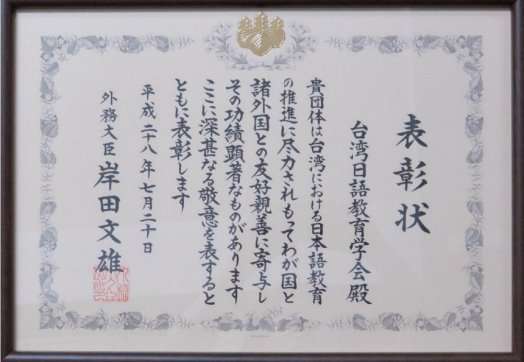 表彰状
台湾日語教育学会殿
貴団体は台湾における日本語教育
の推進に尽力されもってわが国と
諸外国との友好親善に寄与し
その功績顕著なものがあります
ここに深甚なる敬意を表すると
ともに表彰します
平成二十八年七月二十日
外務大臣 岸田文雄